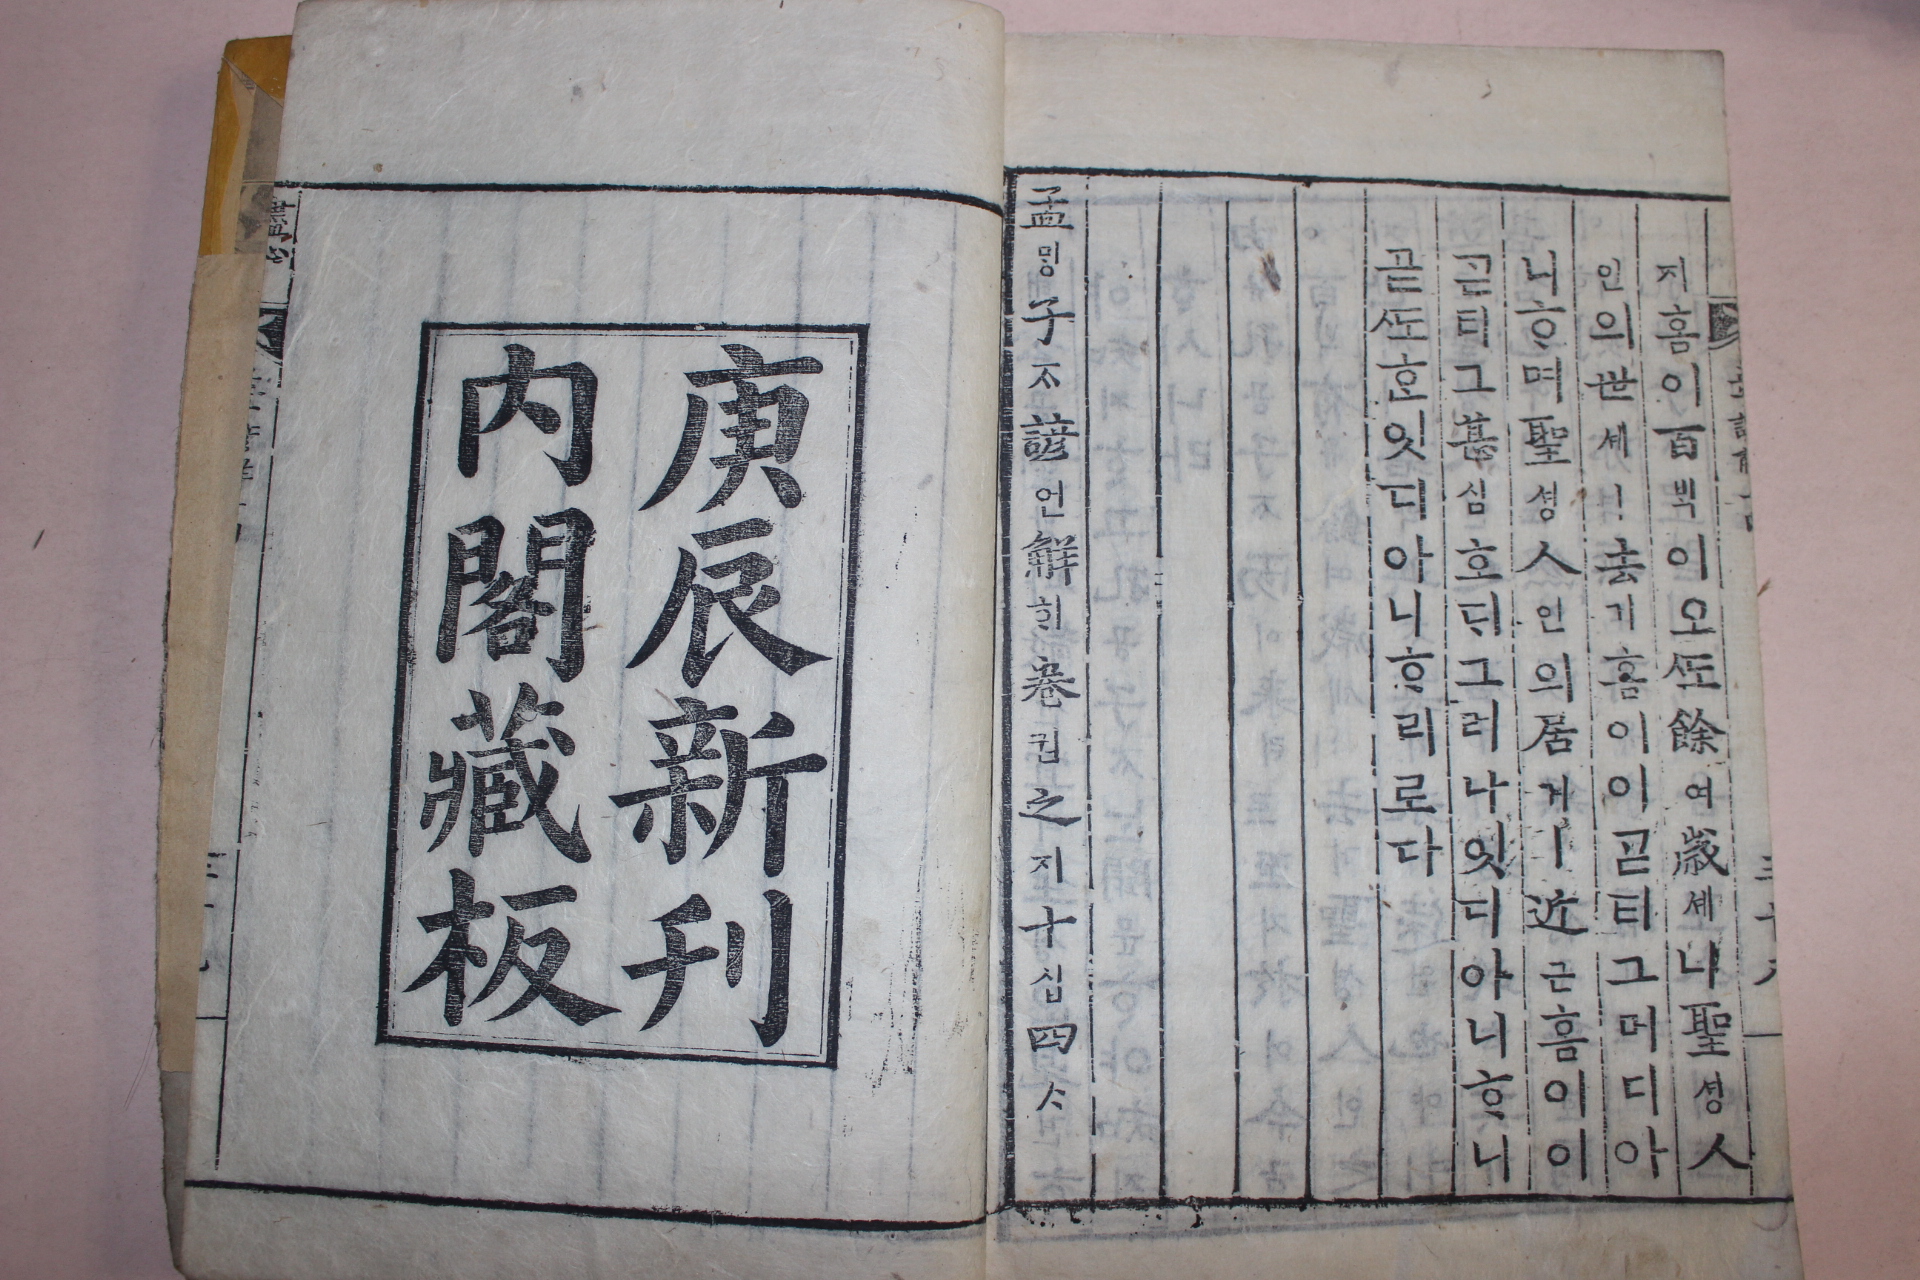 지홈이百ᄇᆡᆨ이오ᄯᅩ餘여歲셰니聖셩人
인의世셰ㅣ去거홈이이ᄀᆞᆮ티그머디아
니ᄒᆞ며聖셩人인의居거ㅣ近근홈이이
ᄀᆞᆮ티그甚심호ᄃᆡ그러나잇디아니ᄒᆞ니
곧ᄯᅩᄒᆞᆫ잇디아니ᄒᆞ리로다
孟ᄆᆡᆼ子ᄌᆞ諺언解ᄒᆡ卷권之지十십四ᄉᆞ
庚辰新刊
內閣藏板